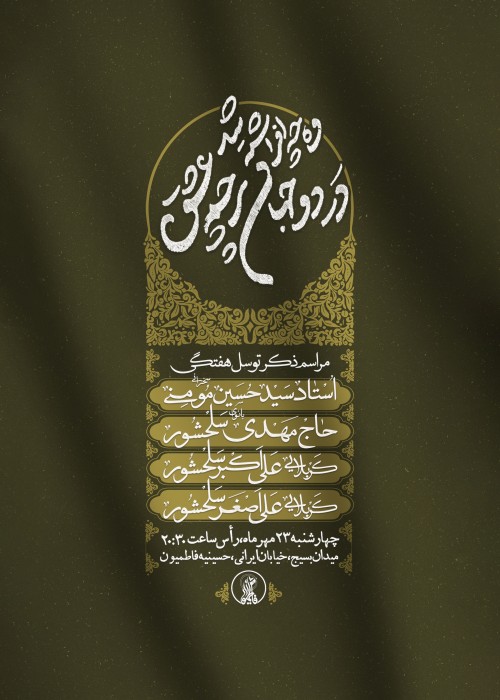 وه چه افراشته شد
در دو جهان پرچم عشق
مراسم ذکر توسل هفتگی
سخنرانی
استاد سید حسین مومنی
بانوای
حاج مهدی سلحشور
کربلایی علی اکبر سلحشور
کربلایی علی اصغر سلحشور
چهارشنبه ۲۳ مهر ماه، رأس ساعت ۲۰:۳۰
میدان بسیج، خیابان ایرانی، حسینیه فاطمیون